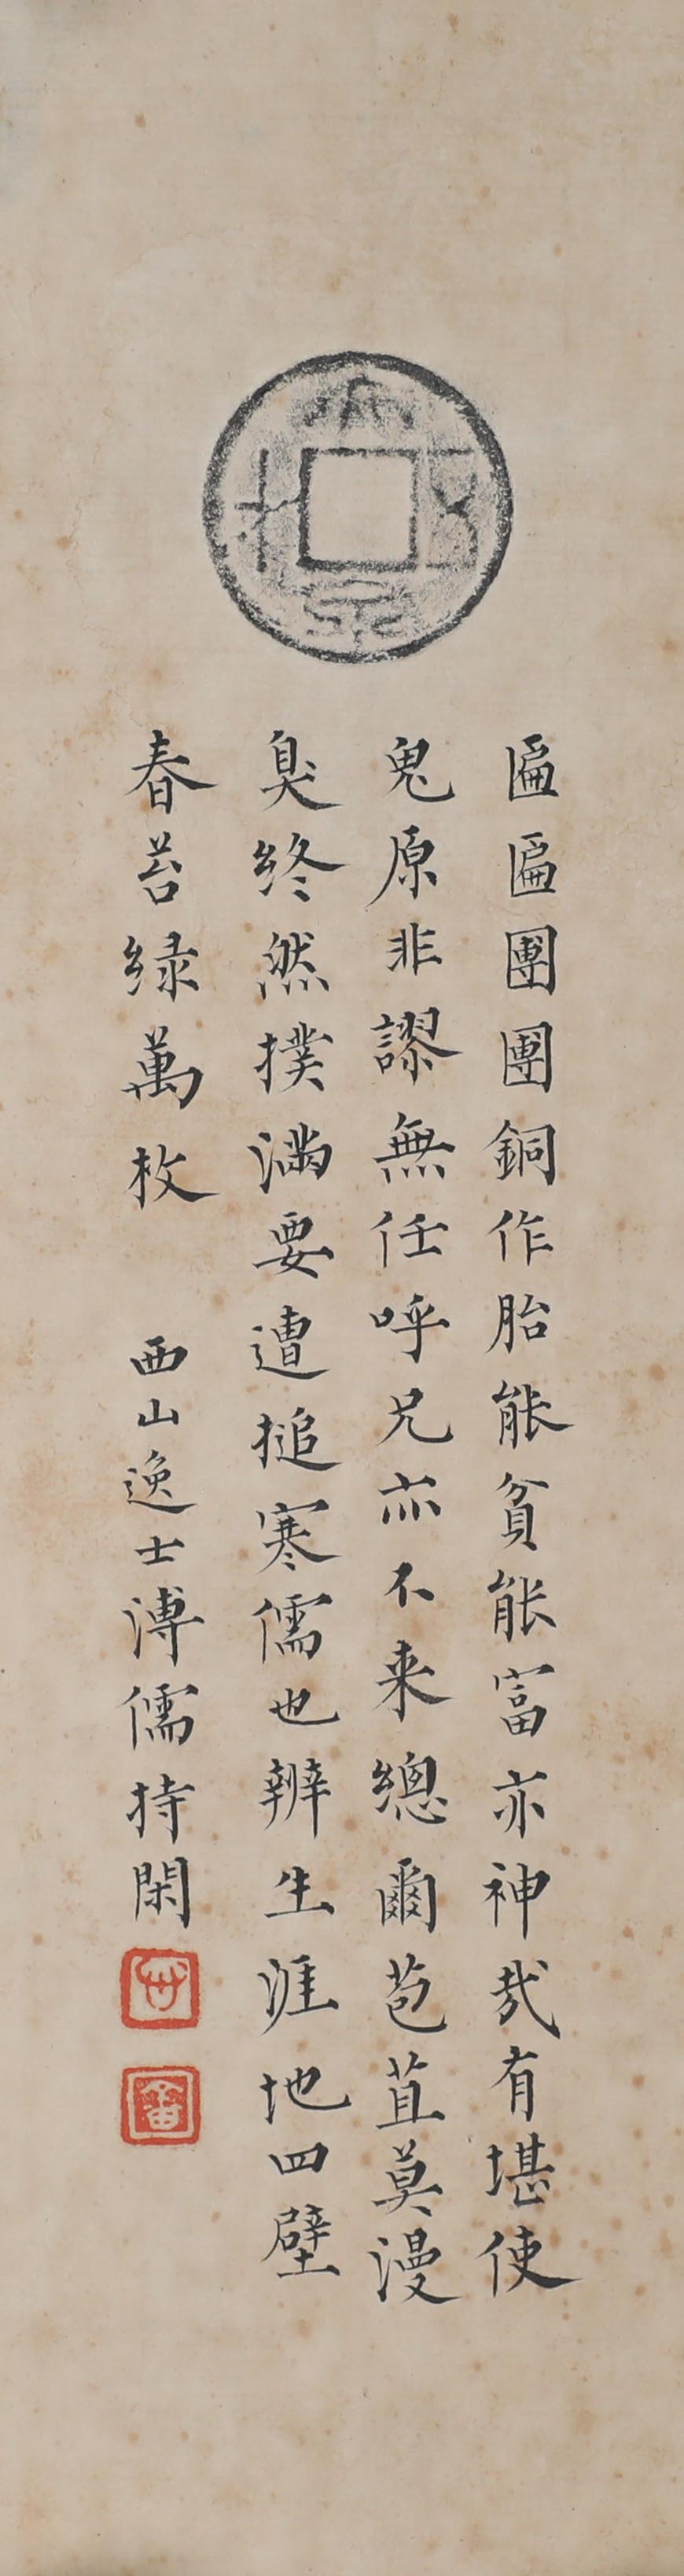 大泉五十
匾匾團團銅作胎能貧能富亦神哉有堪使
鬼原非謬無任呼兄亦不来總爾苞苴莫漫
臭終然撲滿要遭搥寒儒也辦生涯地四壁
春苔緑萬枚 西山逸士溥儒持閑